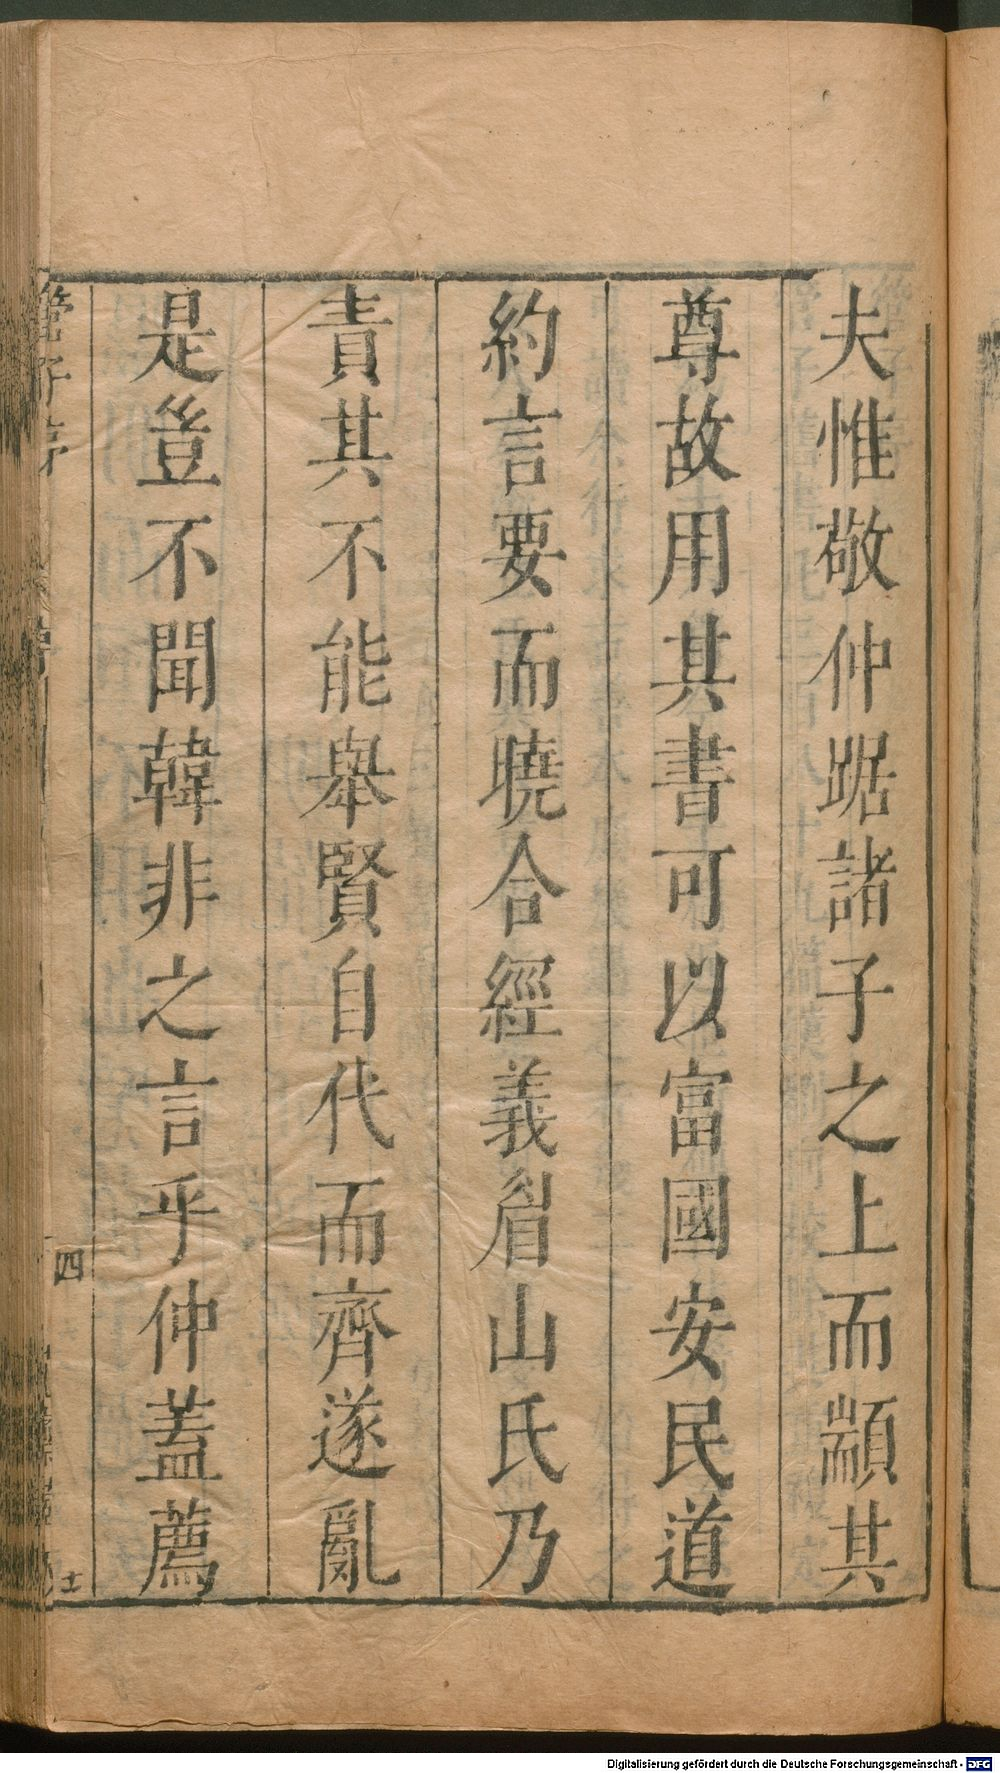 夫惟敬仲踞諸子之上而顓其
尊故用其書可以富國安民道
約言要而曉合經義眉山氏乃
責其不能舉賢自代而齊遂亂
是豈不聞韓非之言乎仲蓋薦
管子序
四
Digitalisierung gefördert durch die Deutsche Forschungsgemeinschaft - DFG